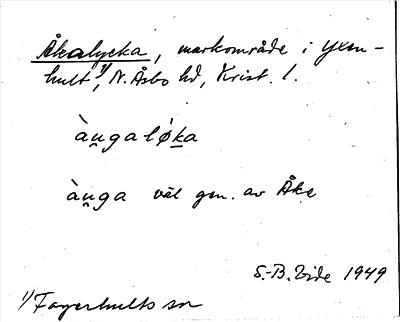 Åkalycka, markområde i Yxen-
hult¹⁾, N. Åsbo hd, Krist. l.
àu̯galø̀ka
àu̯ga väl gen. av Åke
S.-B. Vide 1949
¹⁾ Fagerhults sn